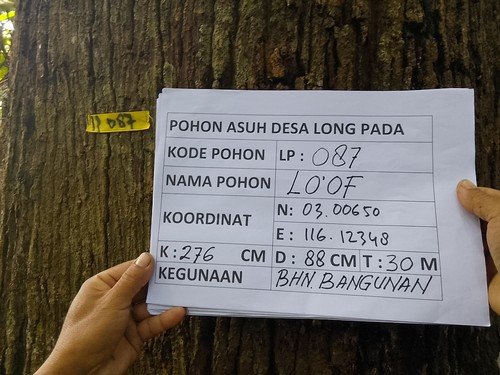 087
POHON ASUH DESA LONG PADA
KODE POHON LP : 087
NAMA POHON LO'OF
KOORDINAT N: 03.00650
E : 116.12348
K : 276 CM D : 88 CM T : 30 M
KEGUNAAN BHN. BANGUNAN